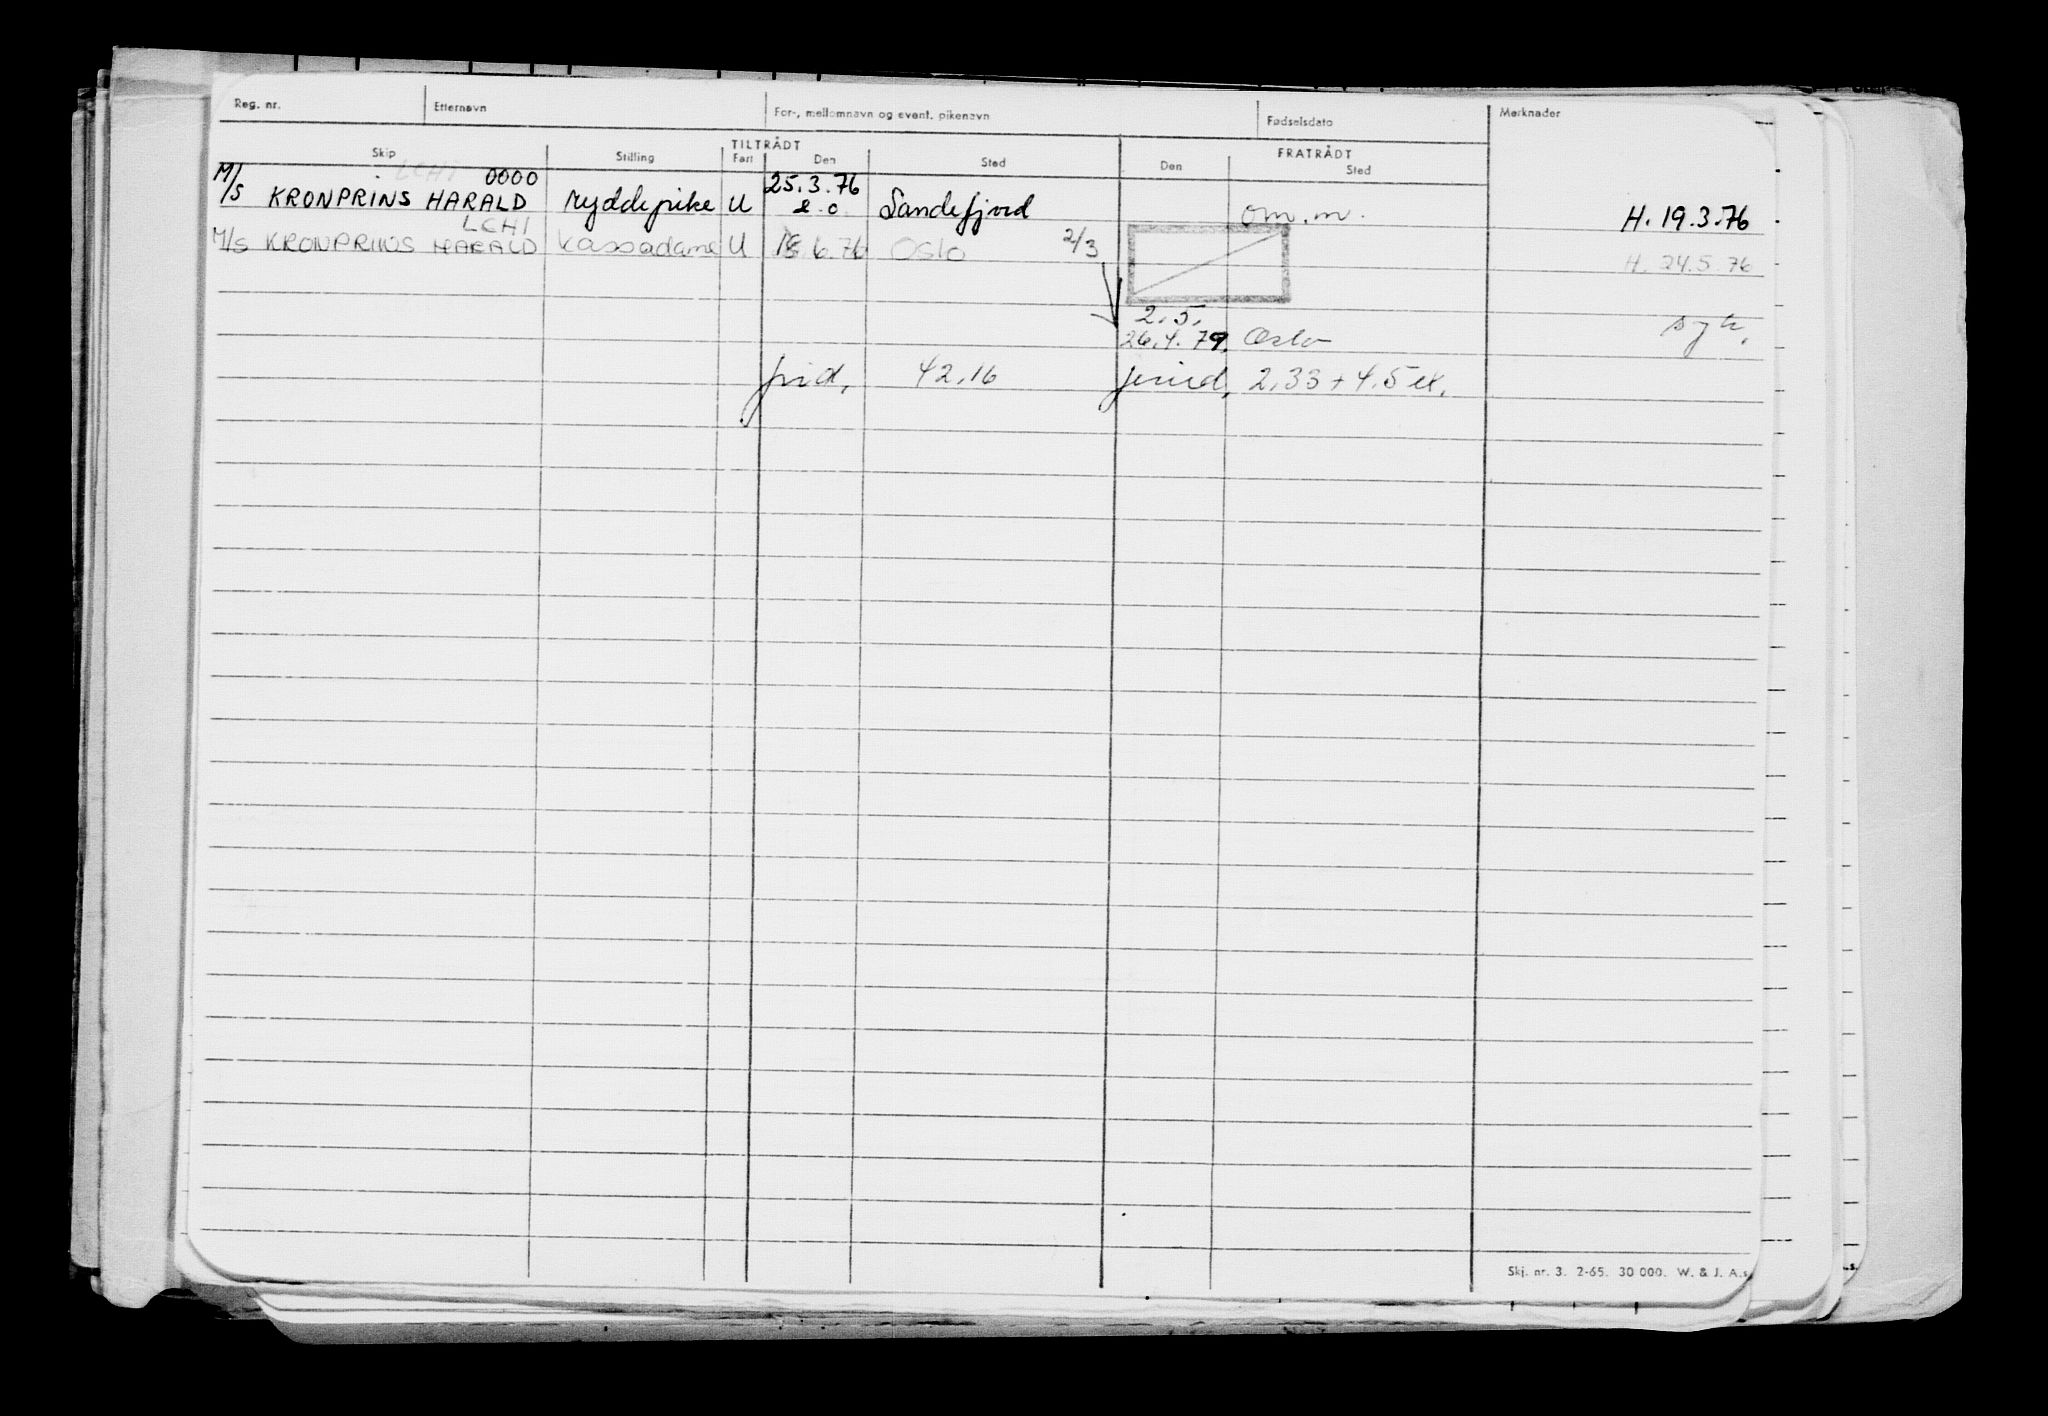 Reg. nr. Etternavn For-, mellomnavn og event. pikenavn Fødselsdato Merknader
TILTRÅDT FRATRÅDT
Skip Stilling Fart Den Sted Den Sted
LCHI 0000
M/S KRONPRINS HARALD ryddepike U 25.3.76 Sandefjord om.m. H. 19.3.76
LCHI
M/S KRONPRINS HARALD Kassadame U 18.6.76 Oslo 2/3 H. 24.5.76
2.5.
26.4.79. Oslo syk.
42.16 2.33 + 4.5
Skj. nr. 3. 2-65. 30 000. W. & J. A.s